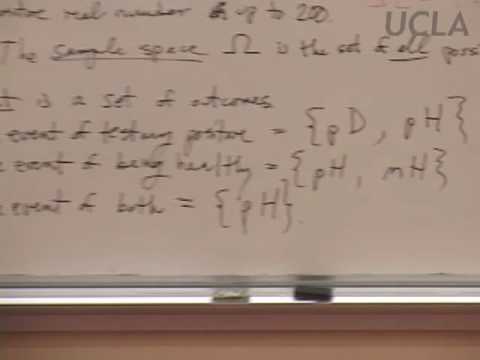 real number up to 200.
UCLA
The sample space Ω is the set of all
is a set of outcomes
event of testing positive = {pD, pH}
event of being healthy = {pH, mH}
event of both = {pH}.